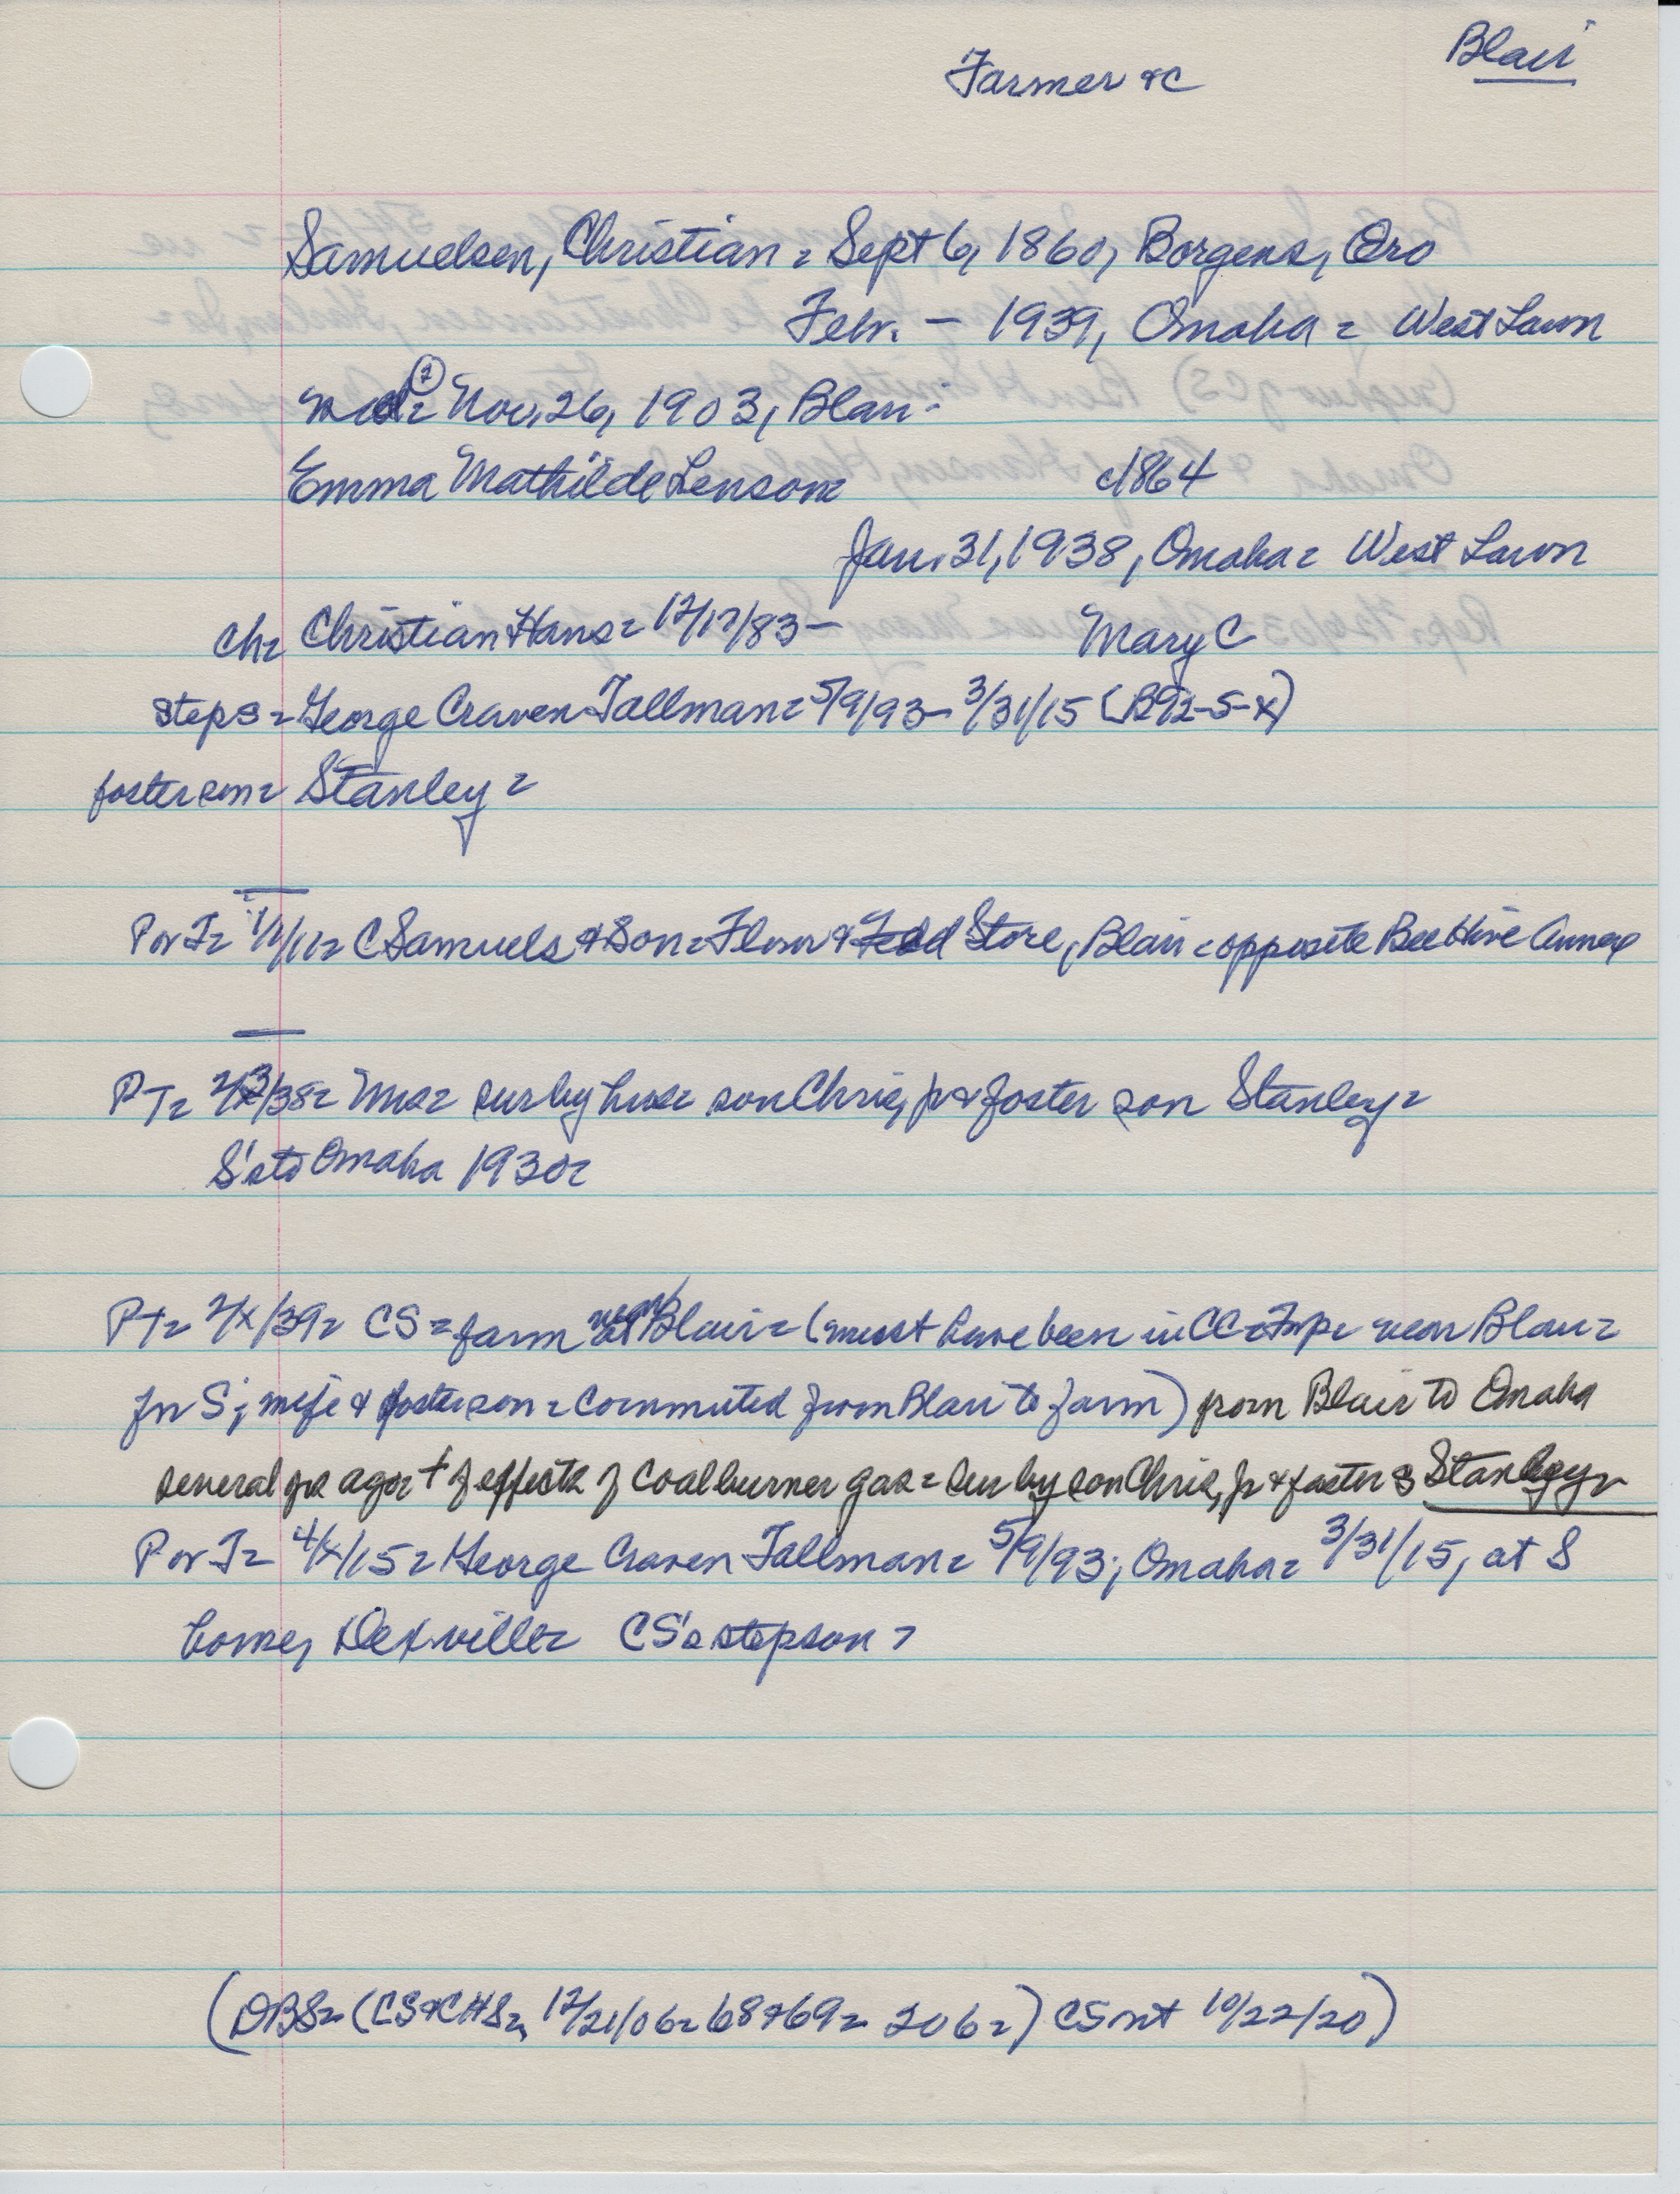 Blair
Farmer &c
Samuelsen, Christian = Sept 6, 1860, Borgens, Oro
Febr. — 1939, Omaha = West Lawn
md② = Nov. 26, 1903, Blair:
Emma Mathilde Lenson = c1864
Jan. 31, 1938, Omaha = West Lawn
ch = Christian Hans = 12/17/83 — Mary C
steps = George Craven Tallman = 5/9/93 — 3/31/15 (B92-5-x)
foster son = Stanley =
P or T = 1/1/11 = C Samuels & Son = Flour & Feed Store, Blair = opposite Bee Hive Annex
PT = 2/3/38 = Mrs = sur by hus = son Chris, jr & foster son Stanley =
S's to Omaha 1930 =
PT = 2/x/39 = CS = farm near Blair = (must have been in CC = Twp = near Blair =
for S; wife & foster son = commuted from Blair to farm) from Blair to Omaha
several yrs ago = + of effects of coal burner gas = sur by son Chris, Jr & foster s Stanley =
P or T = 4/x/15 = George Craven Tallman = 5/9/93; Omaha = 3/31/15, at S
home, Dexville = CS's stepson =
(DBS = (CS & CHS = 12/21/06 = 68 & 69 = 206 =) CS nt 10/22/20)